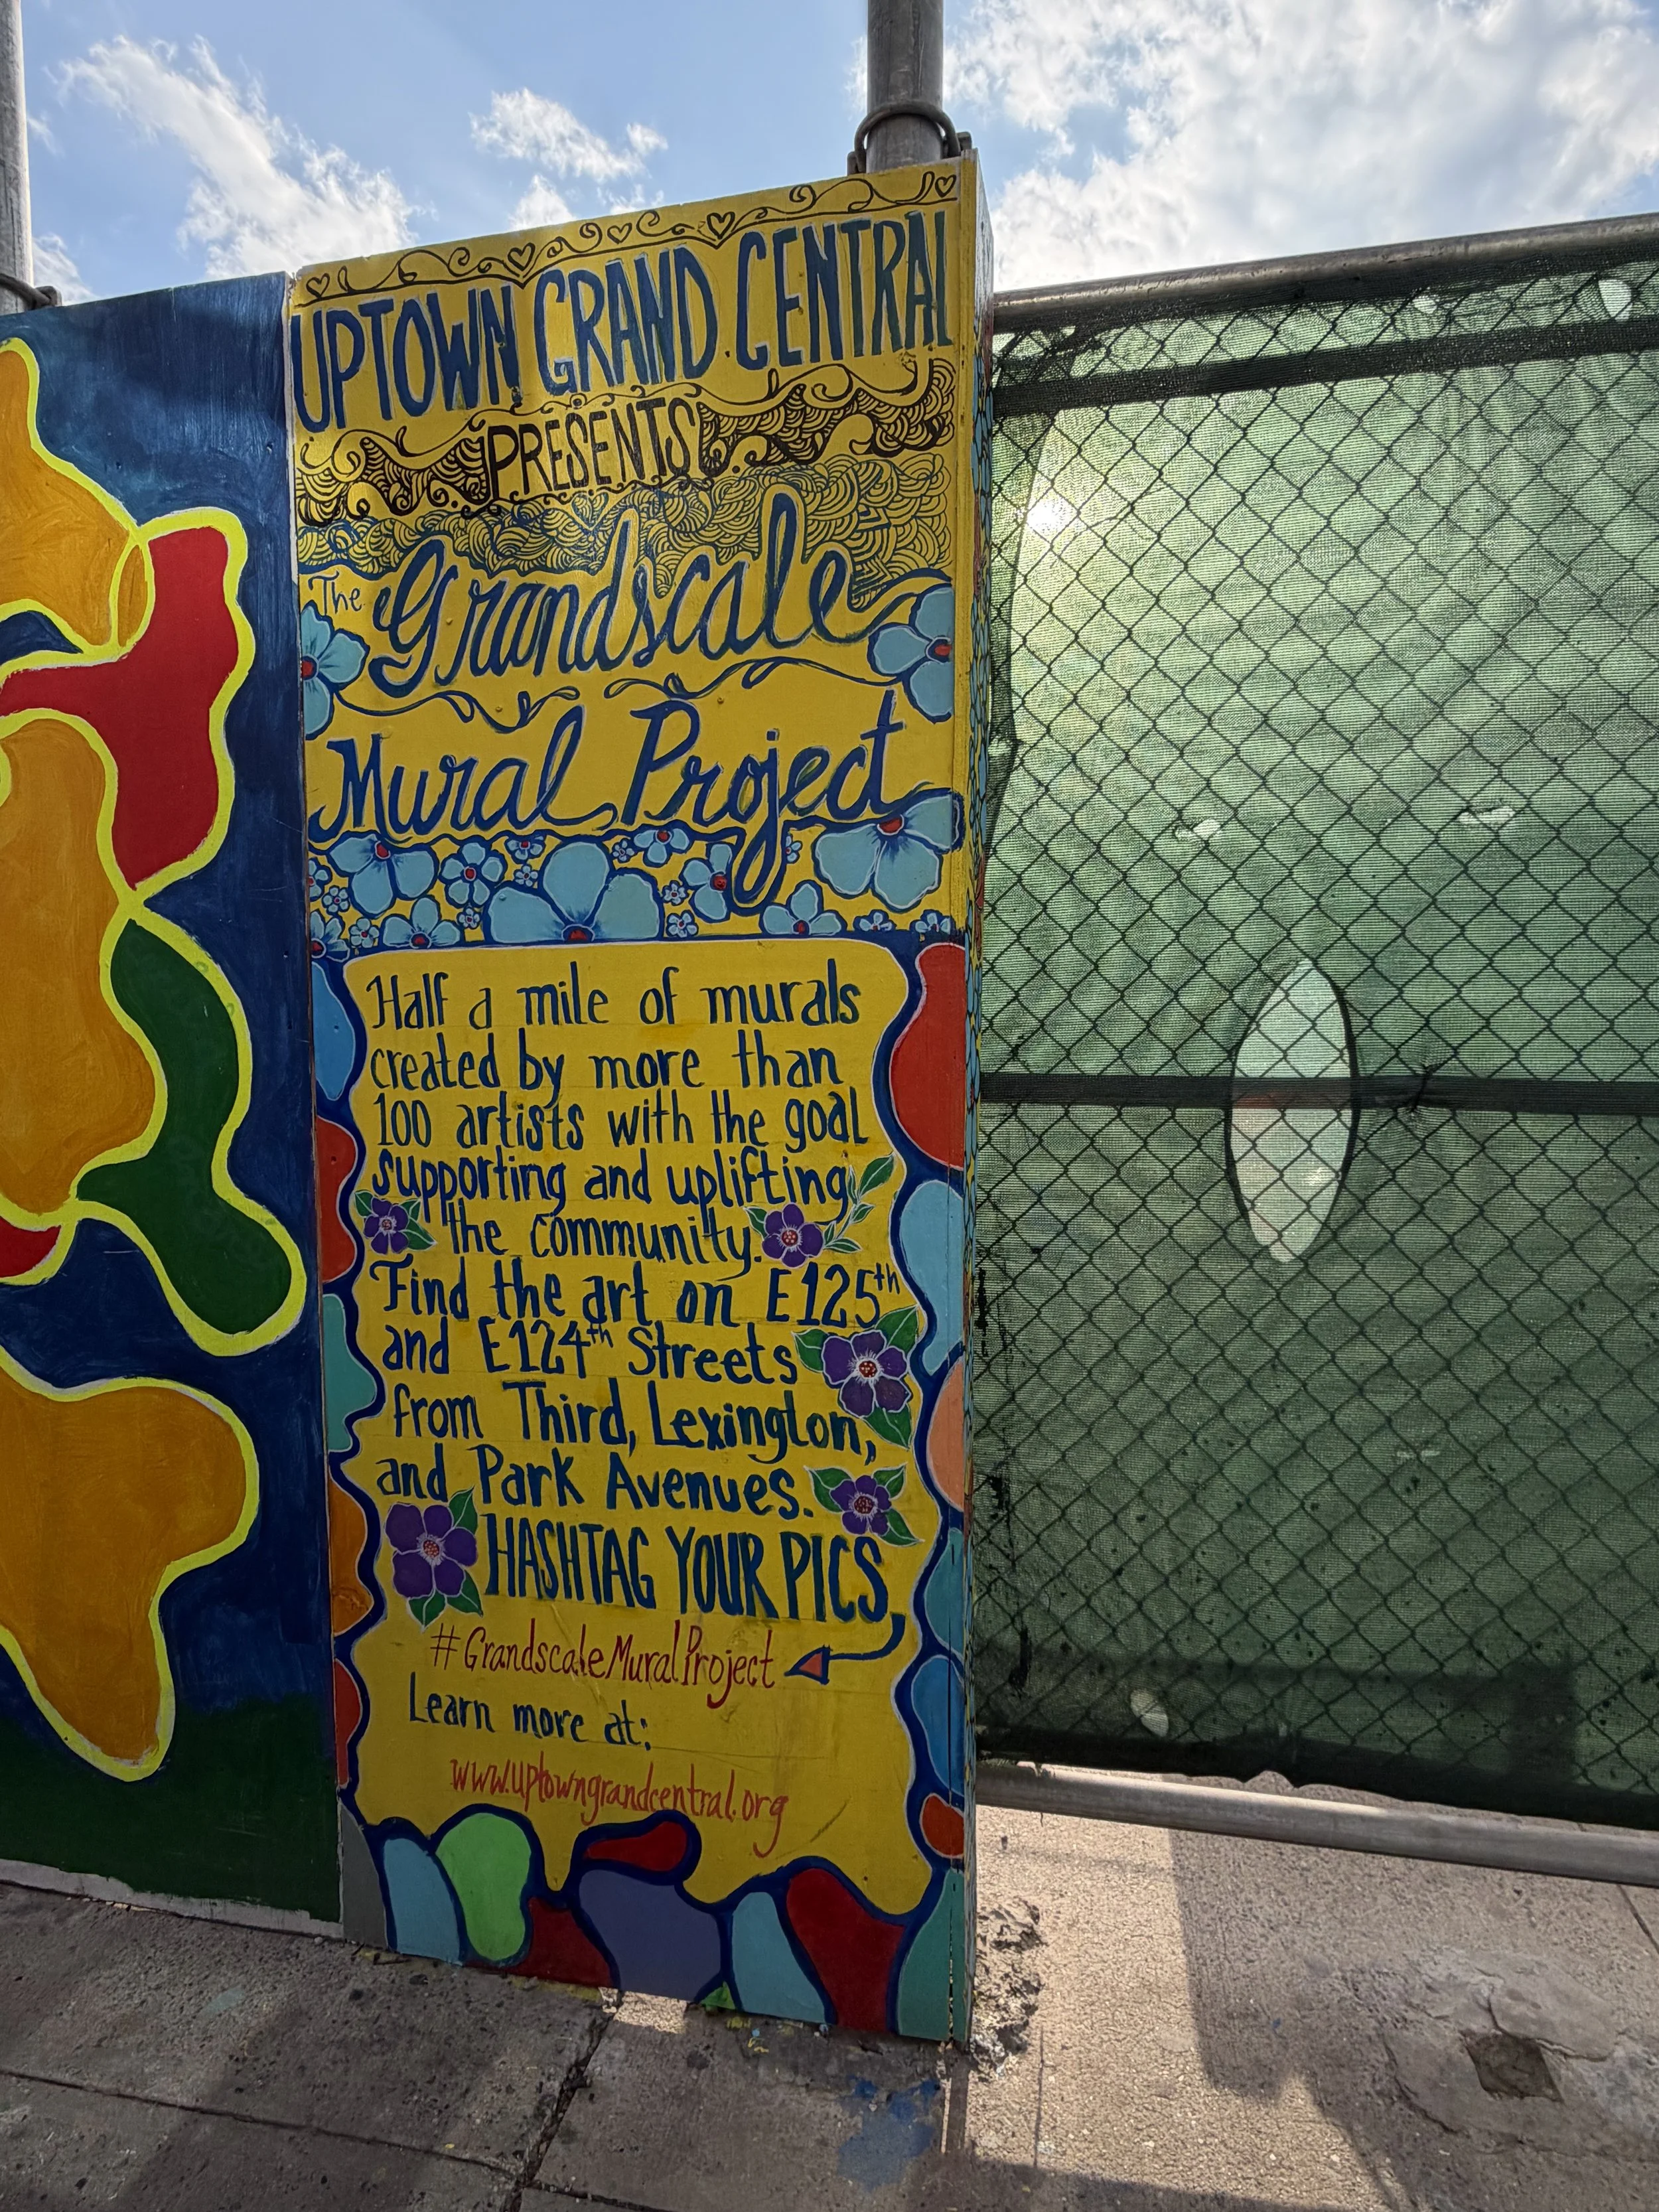 UPTOWN GRAND CENTRAL
PRESENTS
The Grandscale
Mural Project
Half a mile of murals
created by more than
100 artists with the goal
supporting and uplifting
the community.
Find the art on E125th
and E124th Streets
from Third, Lexington,
and Park Avenues.
HASHTAG YOUR PICS,
#GrandscaleMuralProject
Learn more at:
www.uptowngrandcentral.org